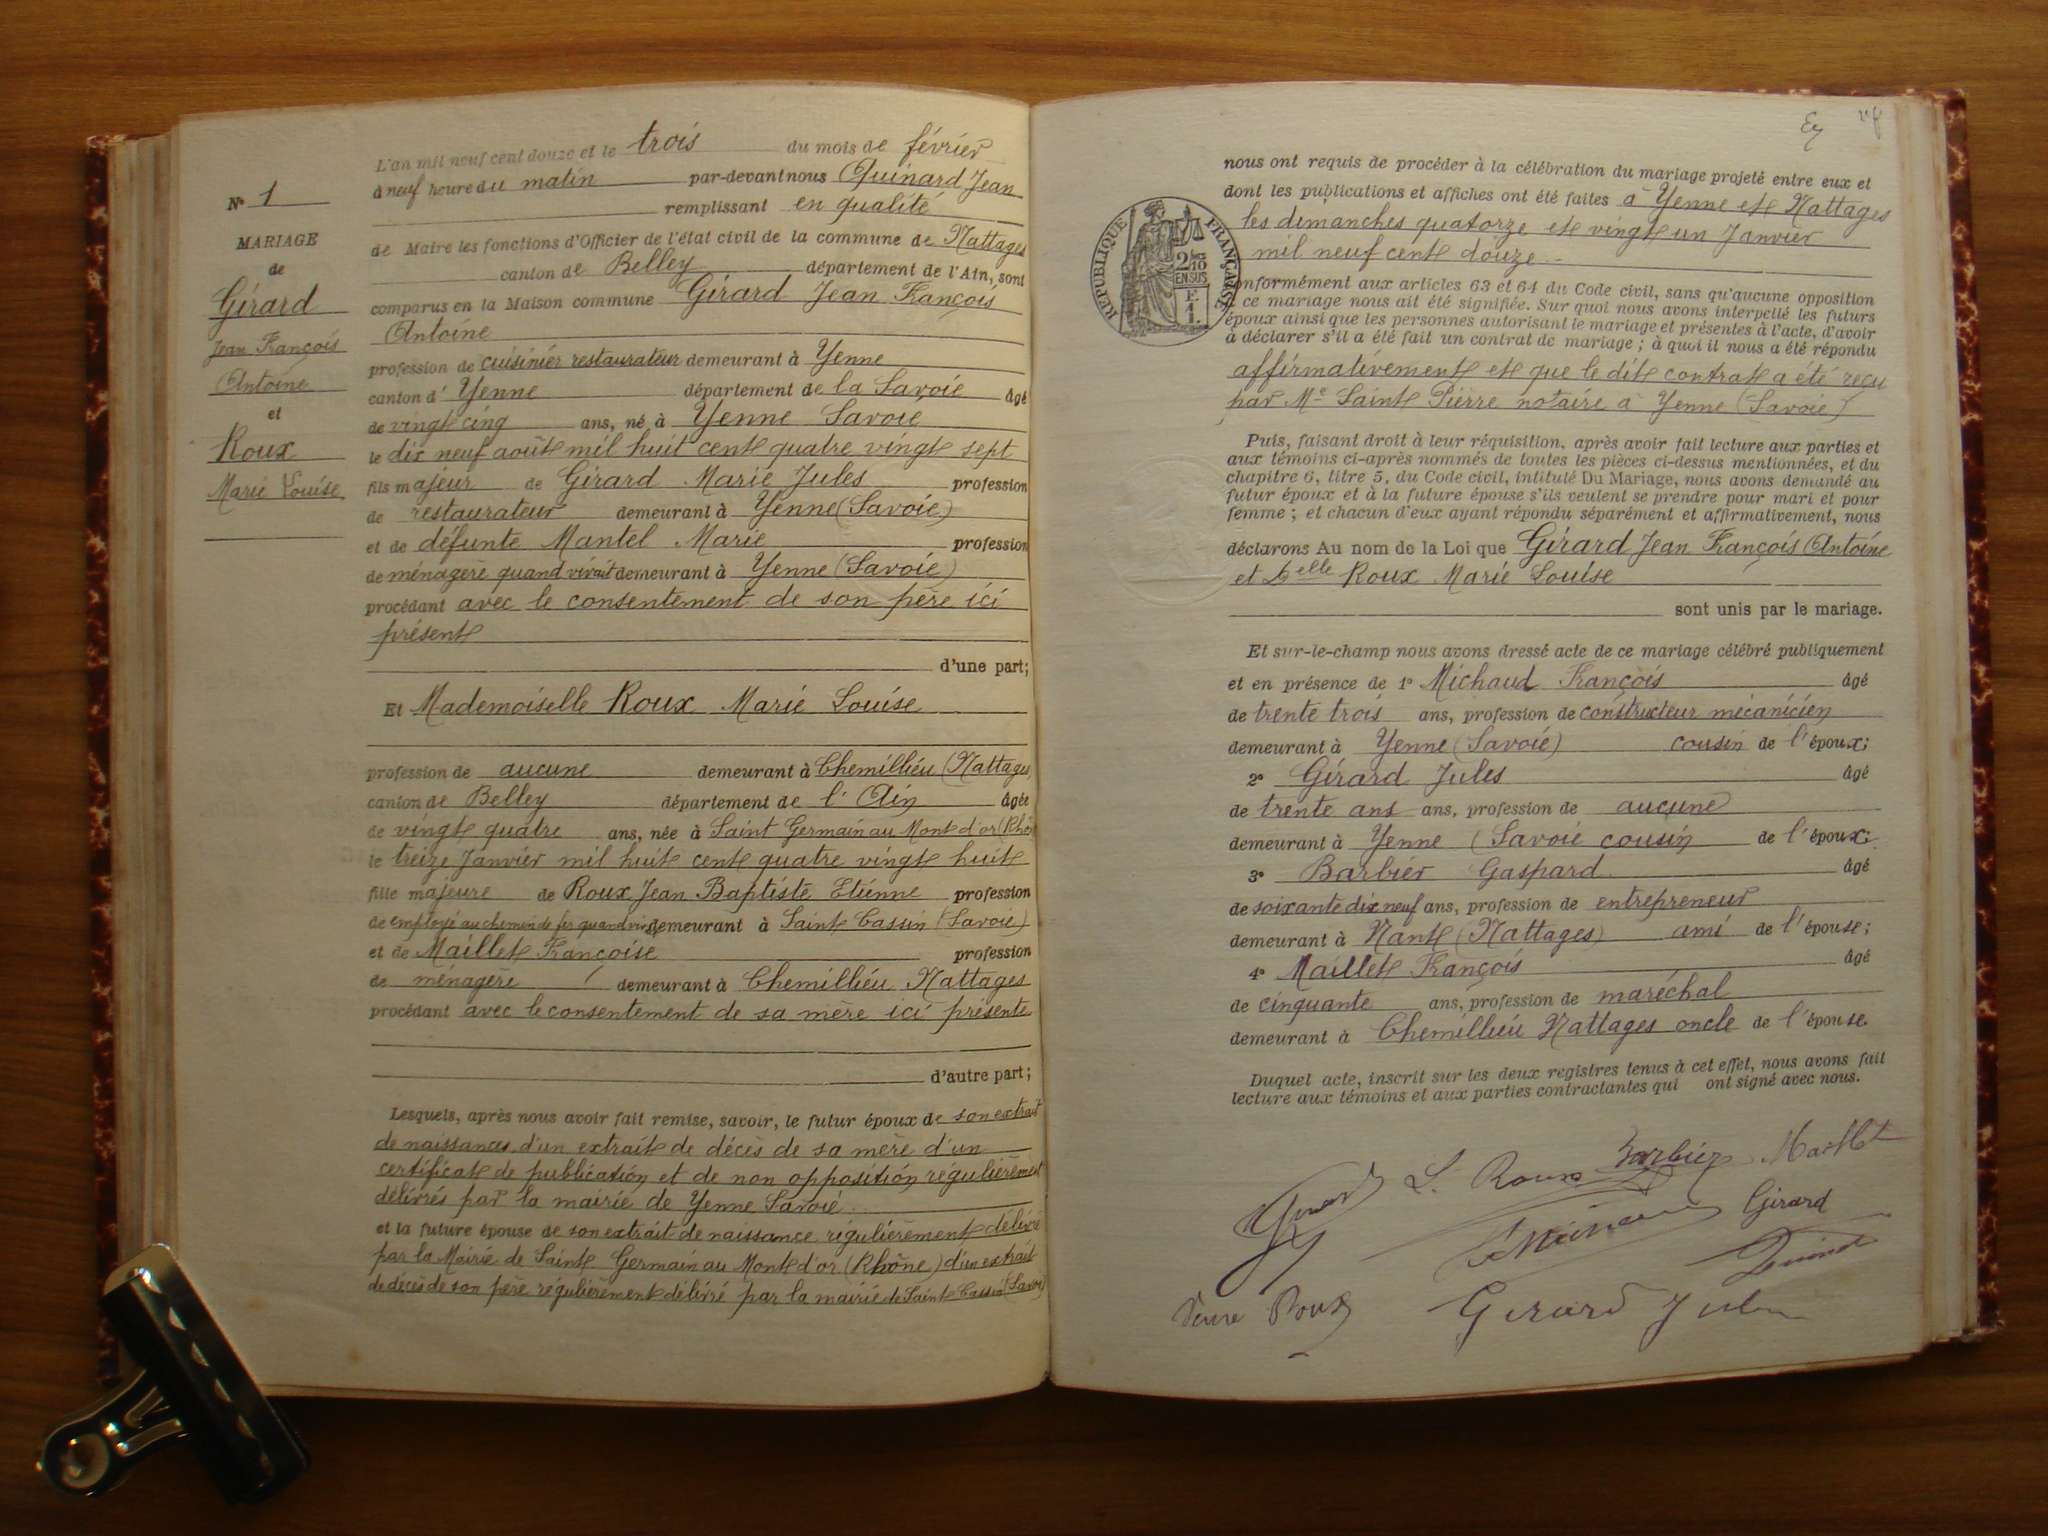 N° 1
MARIAGE
de
Gérard
Jean François
Antoine
et
Roux
Marie Louise
L'an mil neuf cent douze et le trois du mois de février
à neuf heure du matin par-devant nous Quinard Jean
remplissant en qualité
de Maire les fonctions d'Officier de l'état civil de la commune de Nattages
canton de Belley département de l'Ain, sont
comparus en la Maison commune Gérard Jean François
Antoine
profession de cuisinier restaurateur demeurant à Yenne
canton d' Yenne département de la Savoie âgé
de vingt cinq ans, né à Yenne Savoie
le dix neuf août mil huit cent quatre vingt sept
fils majeur de Gérard Marie Jules profession
de restaurateur demeurant à Yenne (Savoie)
et de défunte Mantel Marie profession
de ménagère quand vivait demeurant à Yenne (Savoie)
procédant avec le consentement de son père ici
présent
d'une part;
Et Mademoiselle Roux Marie Louise
profession de aucune demeurant à Chemillieu (Nattages
canton de Belley département de l' Ain âgée
de vingt quatre ans, née à Saint Germain au Mont d'or (Rhô
le treize Janvier mil huit cent quatre vingt huit
fille majeure de Roux Jean Baptiste Etienne profession
de employé au chemin de fer quand viv demeurant à Saint Cassin (Savoie)
et de Maillet Françoise profession
de ménagère demeurant à Chemillieu Nattages
procédant avec le consentement de sa mère ici présente
d'autre part;
Lesquels, après nous avoir fait remise, savoir, le futur époux de son extrait
de naissances d'un extrait de décès de sa mère d'un
certificat de publication et de non opposition régulièrement
délivrés par la mairie de Yenne Savoie
et la future épouse de son extrait de naissance régulièrement délivré
par la Mairie de Saint Germain au Mont d'or (Rhône) d'un extrait
de décès de son père régulièrement délivré par la mairie de Saint Cassin (Savoie)
nous ont requis de procéder à la célébration du mariage projeté entre eux et
dont les publications et affiches ont été faites à Yenne et Nattages
les dimanches quatorze et vingt un Janvier
mil neuf cent douze
RÉPUBLIQUE FRANÇAISE
2/10
EN SUS
F.
1.
onformément aux articles 63 et 64 du Code civil, sans qu'aucune opposition
à ce mariage nous ait été signifiée. Sur quoi nous avons interpellé les futurs
époux ainsi que les personnes autorisant le mariage et présentes à l'acte, d'avoir
à déclarer s'il a été fait un contrat de mariage; à quoi il nous a été répondu
affirmativement et que le dit contrat a été reçu
par Me Saint Pierre notaire à Yenne (Savoie)
Puis, faisant droit à leur réquisition, après avoir fait lecture aux parties et
aux témoins ci-après nommés de toutes les pièces ci-dessus mentionnées, et du
chapitre 6, titre 5, du Code civil, intitulé Du Mariage, nous avons demandé au
futur époux et à la future épouse s'ils veulent se prendre pour mari et pour
femme; et chacun d'eux ayant répondu séparément et affirmativement, nous
déclarons Au nom de la Loi que Gérard Jean François Antoine
et Delle Roux Marie Louise
sont unis par le mariage.
Et sur-le-champ nous avons dressé acte de ce mariage célébré publiquement
et en présence de 1° Michaud François âgé
de trente trois ans, profession de constructeur mécanicien
demeurant à Yenne (Savoie) cousin de l'époux;
2° Gérard Jules âgé
de trente ans ans, profession de aucune
demeurant à Yenne (Savoie cousin de l'époux;
3° Barbier Gaspard âgé
de soixante dix neuf ans, profession de entrepreneur
demeurant à Nant (Nattages) ami de l'épouse;
4° Maillet François âgé
de cinquante ans, profession de maréchal
demeurant à Chemillieu Nattages oncle de l'épouse.
Duquel acte, inscrit sur les deux registres tenus à cet effet, nous avons fait
lecture aux témoins et aux parties contractantes qui ont signé avec nous.
L. Roux Barbier Maillet
Girard
Veuve Roux Gerard Jules